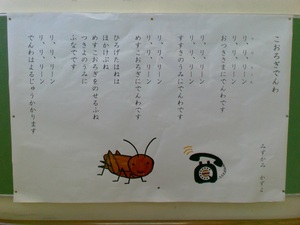 こおろぎでんわ
みずかみ かずよ
リ、リ、リーン
リ、リ、リーン
おつきさまにでんわです
リ、リ、リーン
リ、リ、リーン
すすきのうみにでんわです
リ、リ、リーン
リ、リ、リーン
めすこおろぎにでんわです
ひろげたはねは
ほかけぶね
めすこおろぎをのせるふね
つきよのうみに
ふなでです
リ、リ、リーン
リ、リ、リーン
でんわはよるじゅうかかります